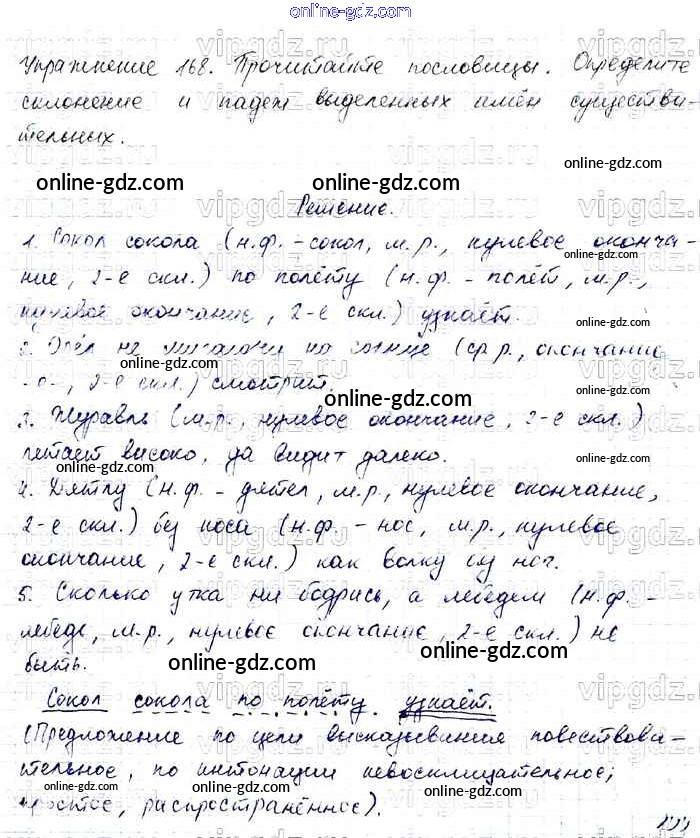 online-gdz.com
Упражнение 168. Прочитайте пословицы. Определите
склонение и падеж выделенных имён существи-
тельных.
online-gdz.com
online-gdz.com online-gdz.com
Решение.
1. Сокол сокола (н.ф. - сокол, м.р., нулевое оконча-
online-gdz.com
ние, 2-е скл.) по полёту (н.ф. - полёт, м.р.,
нулевое окончание, 2-е скл.) узнаёт.
2. Орёл не мигаючи на солнце (ср.р., окончание
online-gdz.com
-е, 2-е скл.) смотрит.
online-gdz.com
3. Журавль (м.р., нулевое окончание, 2-е скл.)
летает высоко, да видит далеко.
online-gdz.com online-gdz.com
4. Дятлу (н.ф. - дятел, м.р., нулевое окончание,
online-gdz.com
2-е скл.) без носа (н.ф. - нос, м.р., нулевое
окончание, 2-е скл.) как волку без ног.
online-gdz.com
5. Сколько утка ни бодрись, а лебедем (н.ф. -
лебедь, м.р., нулевое окончание, 2-е скл.) не
online-gdz.com
быть.
online-gdz.com online-gdz.com
Сокол сокола по полёту узнаёт.
(Предложение по цели высказывания повествова-
тельное, по интонации невосклицательное;
online-gdz.com
простое, распространённое).
online-gdz.com